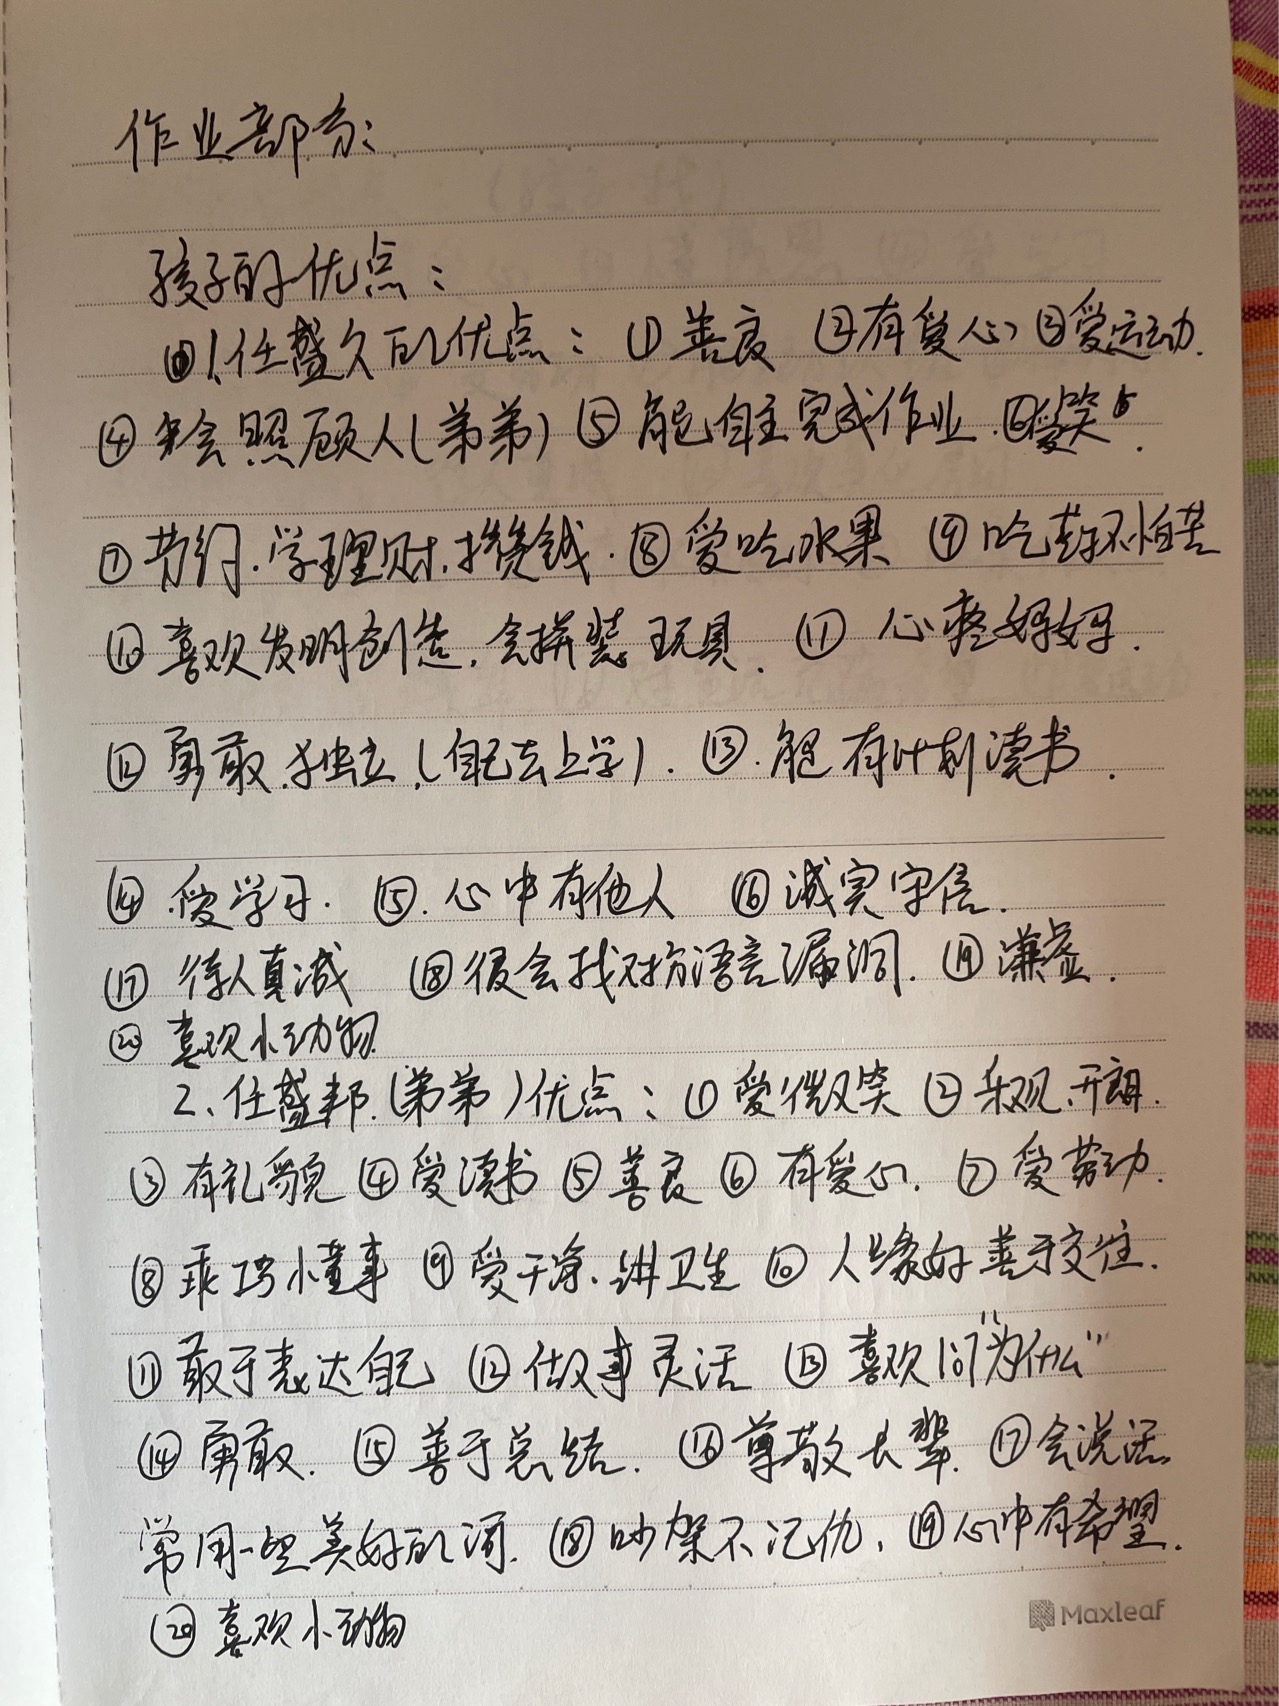 作业部分：
孩子的优点：
1、任盛久的优点：① 善良 ②有爱心 ③爱运动.
④ 会照顾人（弟弟）⑤ 能自主完成作业. ⑥爱笑.
⑦ 节约.学理财.攒钱. ⑧ 爱吃水果 ⑨ 吃药不怕苦
⑩ 喜欢发明创造.会拼装玩具. ⑪ 心疼妈妈.
⑫ 勇敢.独立.（自己去上学）. ⑬.能有计划读书.
⑭.爱学习. ⑮.心中有他人 ⑯ 诚实守信.
⑰ 待人真诚 ⑱ 很会找对方语言漏洞. ⑲ 谦虚.
⑳ 喜欢小动物.
2、任盛邦.（弟弟）优点：① 爱微笑 ② 乐观.开朗.
③ 有礼貌 ④ 爱读书 ⑤ 善良 ⑥ 有爱心. ⑦ 爱劳动.
⑧ 乖巧小董事 ⑨ 爱干净、讲卫生 ⑩ 人缘好善于交往.
⑪ 敢于表达自己 ⑫ 做事灵活 ⑬ 喜欢问“为什么”
⑭ 勇敢. ⑮ 善于总结. ⑯ 尊敬长辈. ⑰ 会说话.
常用一些美好的词. ⑱ 吵架不记仇、⑲ 心中有希望.
⑳ 喜欢小动物
Maxleaf